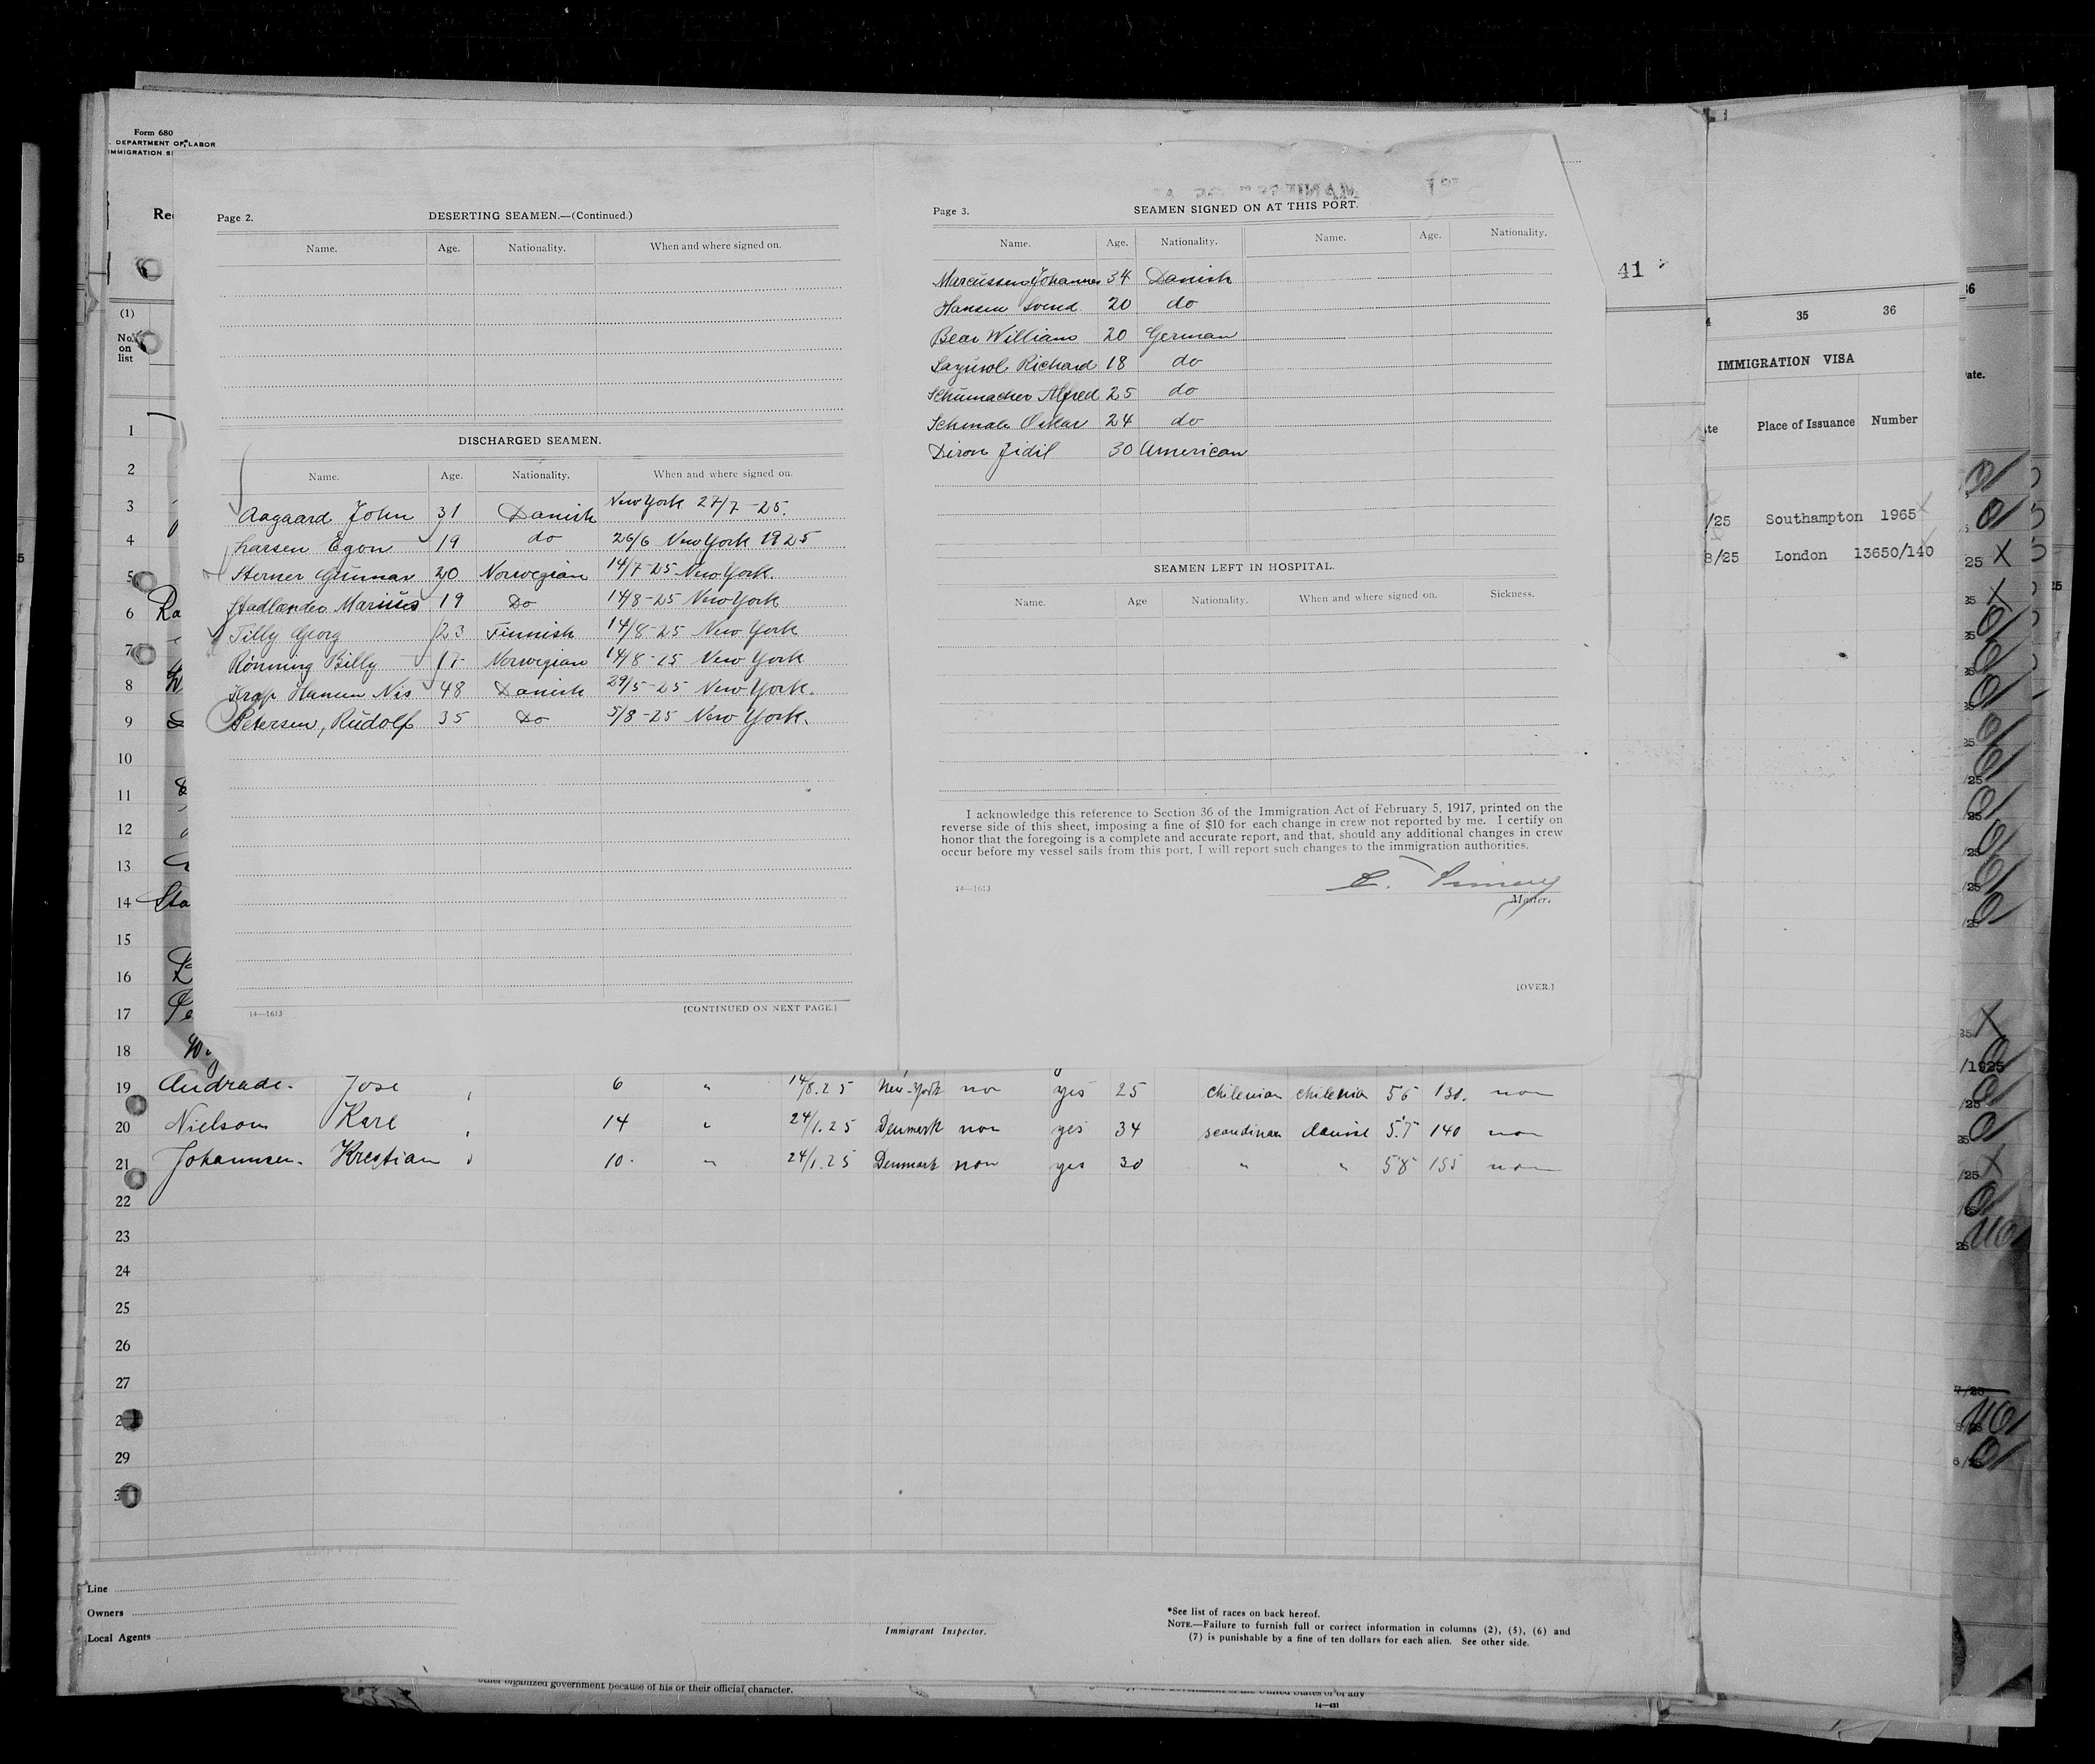 Form 680
DEPARTMENT OF LABOR
IMMIGRATION
(1)
No. on list
Page 2.
DESERTING SEAMEN.—(Continued.)
Name. Age. Nationality. When and where signed on.
DISCHARGED SEAMEN.
Name. Age. Nationality. When and where signed on.
Aagaard John 31 Danish New York 27/7-25.
Larsen Egon 19 do 26/6 New York 1925
Sterner Gunnar 20 Norwegian 14/7-25 New York.
Stadlander Marius 19 Do 14/8-25 New York
Tilly Georg 23 Finnish 14/8-25 New York
Rönning Billy 17 Norwegian 14/8-25 New York
Krap Hansen Nis 48 Danish 29/5-25 New York.
Petersen, Rudolf 35 Do 5/8-25 New York.
14—1613
[CONTINUED ON NEXT PAGE.]
Page 3.
SEAMEN SIGNED ON AT THIS PORT.
Name. Age. Nationality. Name. Age. Nationality.
Marcussen Johannes 34 Danish
Hansen Svend 20 do
Bear William 20 German
Richard 18 do
Schumacher Alfred 25 do
Schmale Oskar 24 do
Diron Fidil 30 American
SEAMEN LEFT IN HOSPITAL.
Name. Age Nationality. When and where signed on. Sickness.
I acknowledge this reference to Section 36 of the Immigration Act of February 5, 1917, printed on the
reverse side of this sheet, imposing a fine of $10 for each change in crew not reported by me. I certify on
honor that the foregoing is a complete and accurate report, and that, should any additional changes in crew
occur before my vessel sails from this port, I will report such changes to the immigration authorities.
14—1613
Master.
[OVER.]
41
35 36
IMMIGRATION VISA
Place of Issuance Number
/25 Southampton 1965
8/25 London 13650/140
1
2
3
4
5
6
7
8
9
10
11
12
13
14
15
16
17
18
19 Andrade. Jose 6 " 14/8.25 New-York non yes 25 chilenian chilenia 56 130. non
20 Nielson Karl 14 " 24/1.25 Denmark non yes 34 scandinav danise 5.7 140 non
21 Johannsen. Krestian 10. " 24/1.25 Denmark non yes 30 " " 58 155 non
22
23
24
25
26
27
29
Line
Owners
Local Agents
Immigrant Inspector.
*See list of races on back hereof.
NOTE.—Failure to furnish full or correct information in columns (2), (5), (6) and
(7) is punishable by a fine of ten dollars for each alien. See other side.
other organized government because of his or their official character.